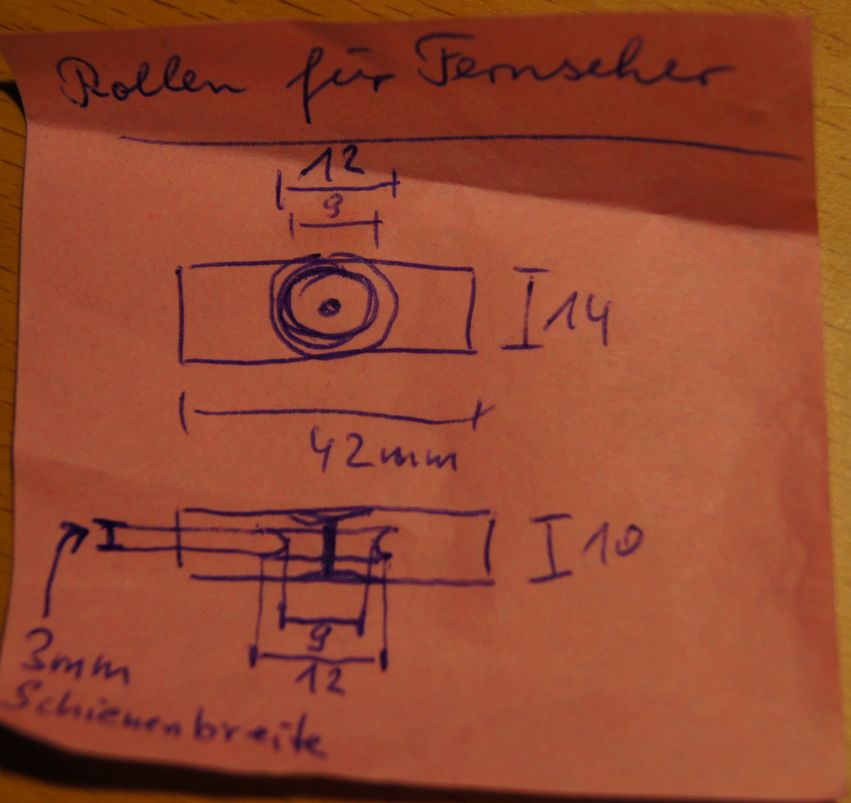 Rollen für Fernseher
12
9
14
42mm
10
9
12
3mm
Schienenbreite